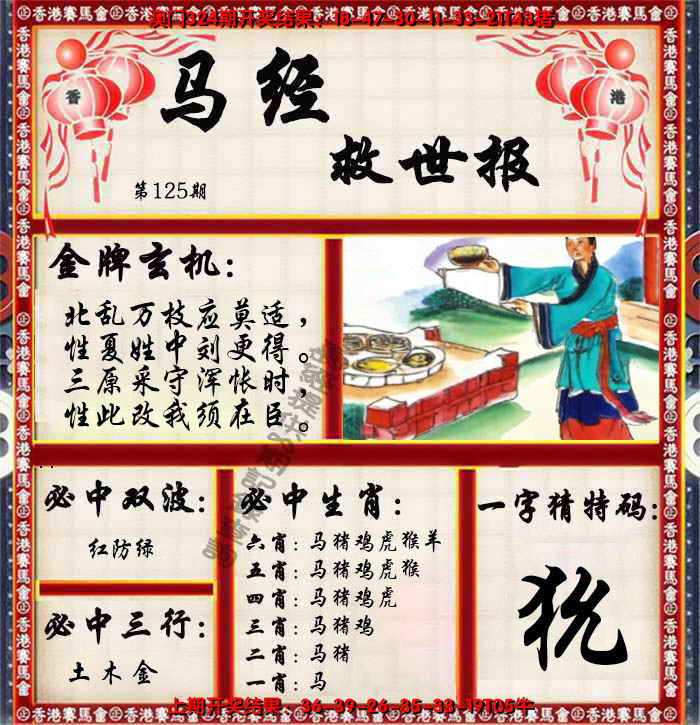 澳门324期开奖结果：18-47-30-11-33-21T43猪
香
港
马经
救世报
第125期
金牌玄机：
北乱万枝应莫适，
性夏姓中刘更得。
三原采守浑怅时，
性此改我须在臣。
必中双波：
红防绿
必中三行：
土木金
必中生肖：
六肖：马猪鸡虎猴羊
五肖：马猪鸡虎猴
四肖：马猪鸡虎
三肖：马猪鸡
二肖：马猪
一肖：马
一字猜特码：
犹
上期开奖结果：36-39-26-35-38-19T05牛
香港賽馬會